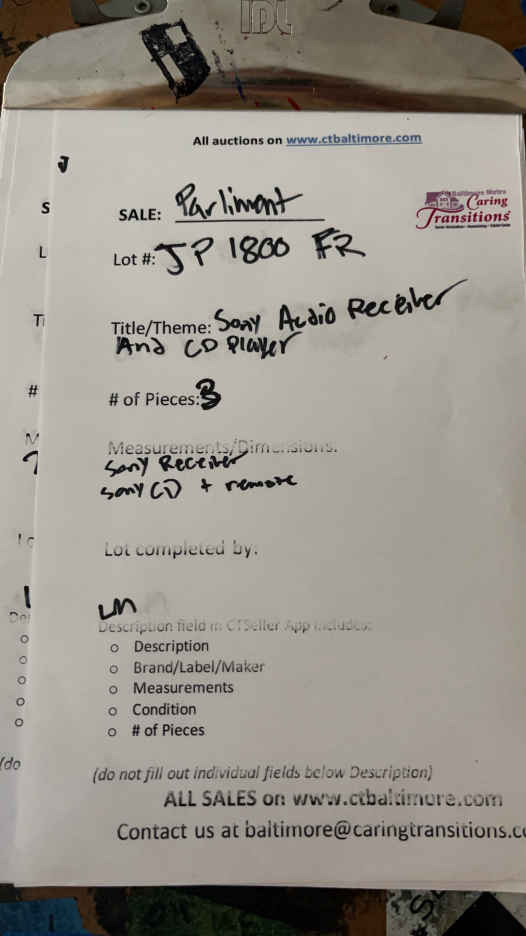 IDL
All auctions on www.ctbaltimore.com
SALE: Parliment
Baltimore Metro
Caring
Transitions
Lot #: JP 1800 FR
Title/Theme: Sony Audio Receiver
And CD Player
# of Pieces: 3
Measurements/Dimensions:
Sony Receiver
Sony CD + remote
Lot completed by:
LM
Description field in CTSeller App includes:
o Description
o Brand/Label/Maker
o Measurements
o Condition
o # of Pieces
(do not fill out individual fields below Description)
ALL SALES on www.ctbaltimore.com
Contact us at baltimore@caringtransitions.c